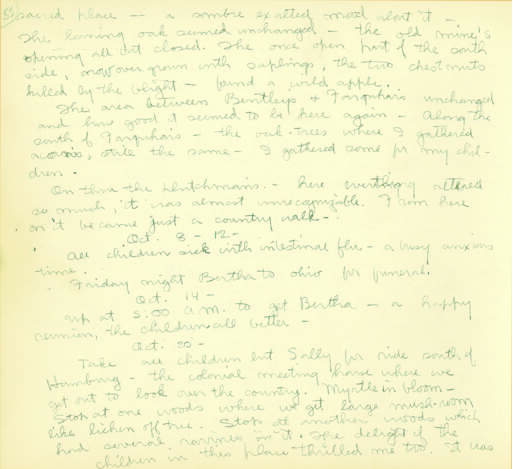 sacred place -- a sombre exalted mood about it -
The leaning oak seemed unchanged - the old mine's
opening all but closed. The once open part of the south
side, now overgrown with saplings, the two chestnuts
killed by the blight - found a wild apple.
The area between Bentleys & Farquhars unchanged
and how good it seemed to be here again - Along the
south of Farquhars - the oak-trees where I gathered
acorns, still the same - I gathered some for my chil-
dren.
On thru the Dutchmans - here everything altered
so much, it was almost unrecognizable. From here
on it became just a country walk -
Oct. 8 - 12 -
All children sick with intestinal flu - a busy anxious
time.
Friday night Bertha to Ohio for funeral.
Oct. 14 -
Up at 5:00 A.M. to get Bertha - a happy
reunion, the children all better -
Oct. 20 -
Take all children but Sally for ride south of
Hamburg - the colonial meeting house where we
get out to look over the country. Myrtle in bloom -
Stop at one woods where we get large mushroom
like lichen off tree. Stop at another woods which
had several ravines in it. The delight of the
children in this place thrilled me too. It was